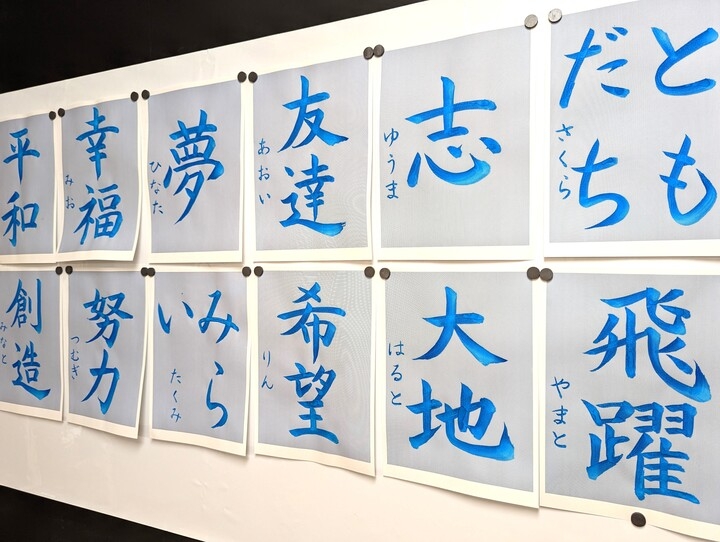 とも
だち
さくら
志
ゆうま
友達
あおい
夢
ひなた
幸福
みお
平和
飛躍
やまと
大地
はると
希望
りん
みら
い
たくみ
努力
つむぎ
創造
みなと